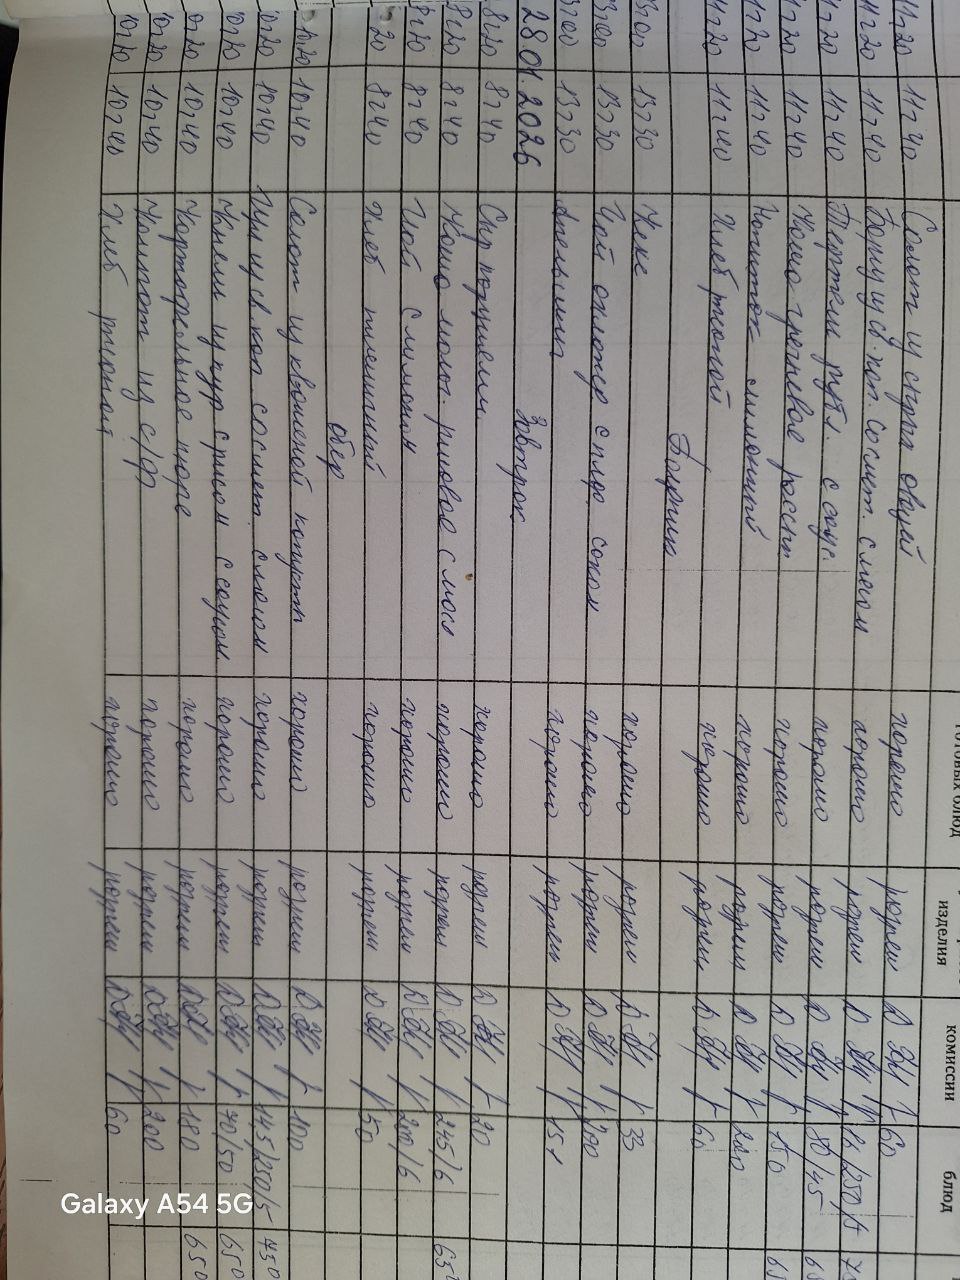 готовых блюд изделия комиссии блюд
11-20 11-40 Салат из свежих овощей хорошо разрешен 60
11-20 11-40 Борщ из св. кап. со смет. с мясом хорошо разрешен
11-20 11-40 с соус. хорошо разрешен 80/45
11-20 11-40 Каша гречневая рассып хорошо разрешен 150
11-20 11-40 Напиток лимонный хорошо разрешен 200
11-20 11-40 Хлеб ржаной хорошо разрешен 60
Полдник
13-00 13-30 Кекс хорошо разрешен
13-00 13-30 Чай с соком хорошо разрешен 200
13-00 13-30 Апельсин хорошо разрешен 151
28 01 2026 Завтрак
8-20 8-40 Сыр порциями хорошо разрешен 20
8-20 8-40 Каша молоч. рисовая с масл хорошо разрешен 245/6
8-20 8-40 Чай с лимоном хорошо разрешен 200/6
8-20 8-40 Хлеб пшеничный хорошо разрешен 50
обед
10-20 10-40 Салат из квашеной капусты хорошо разрешен 100
10-20 10-40 Щи из св кап со смет. с мясом хорошо разрешен
10-20 10-40 Кнели из кур с рисом с соусом хорошо разрешен 70/50 650
10-20 10-40 Картофельное пюре хорошо разрешен 180 650
10-20 10-40 Компот из с/ф хорошо разрешен 200
10-20 10-40 Хлеб ржаной хорошо разрешен 60
Galaxy A54 5G